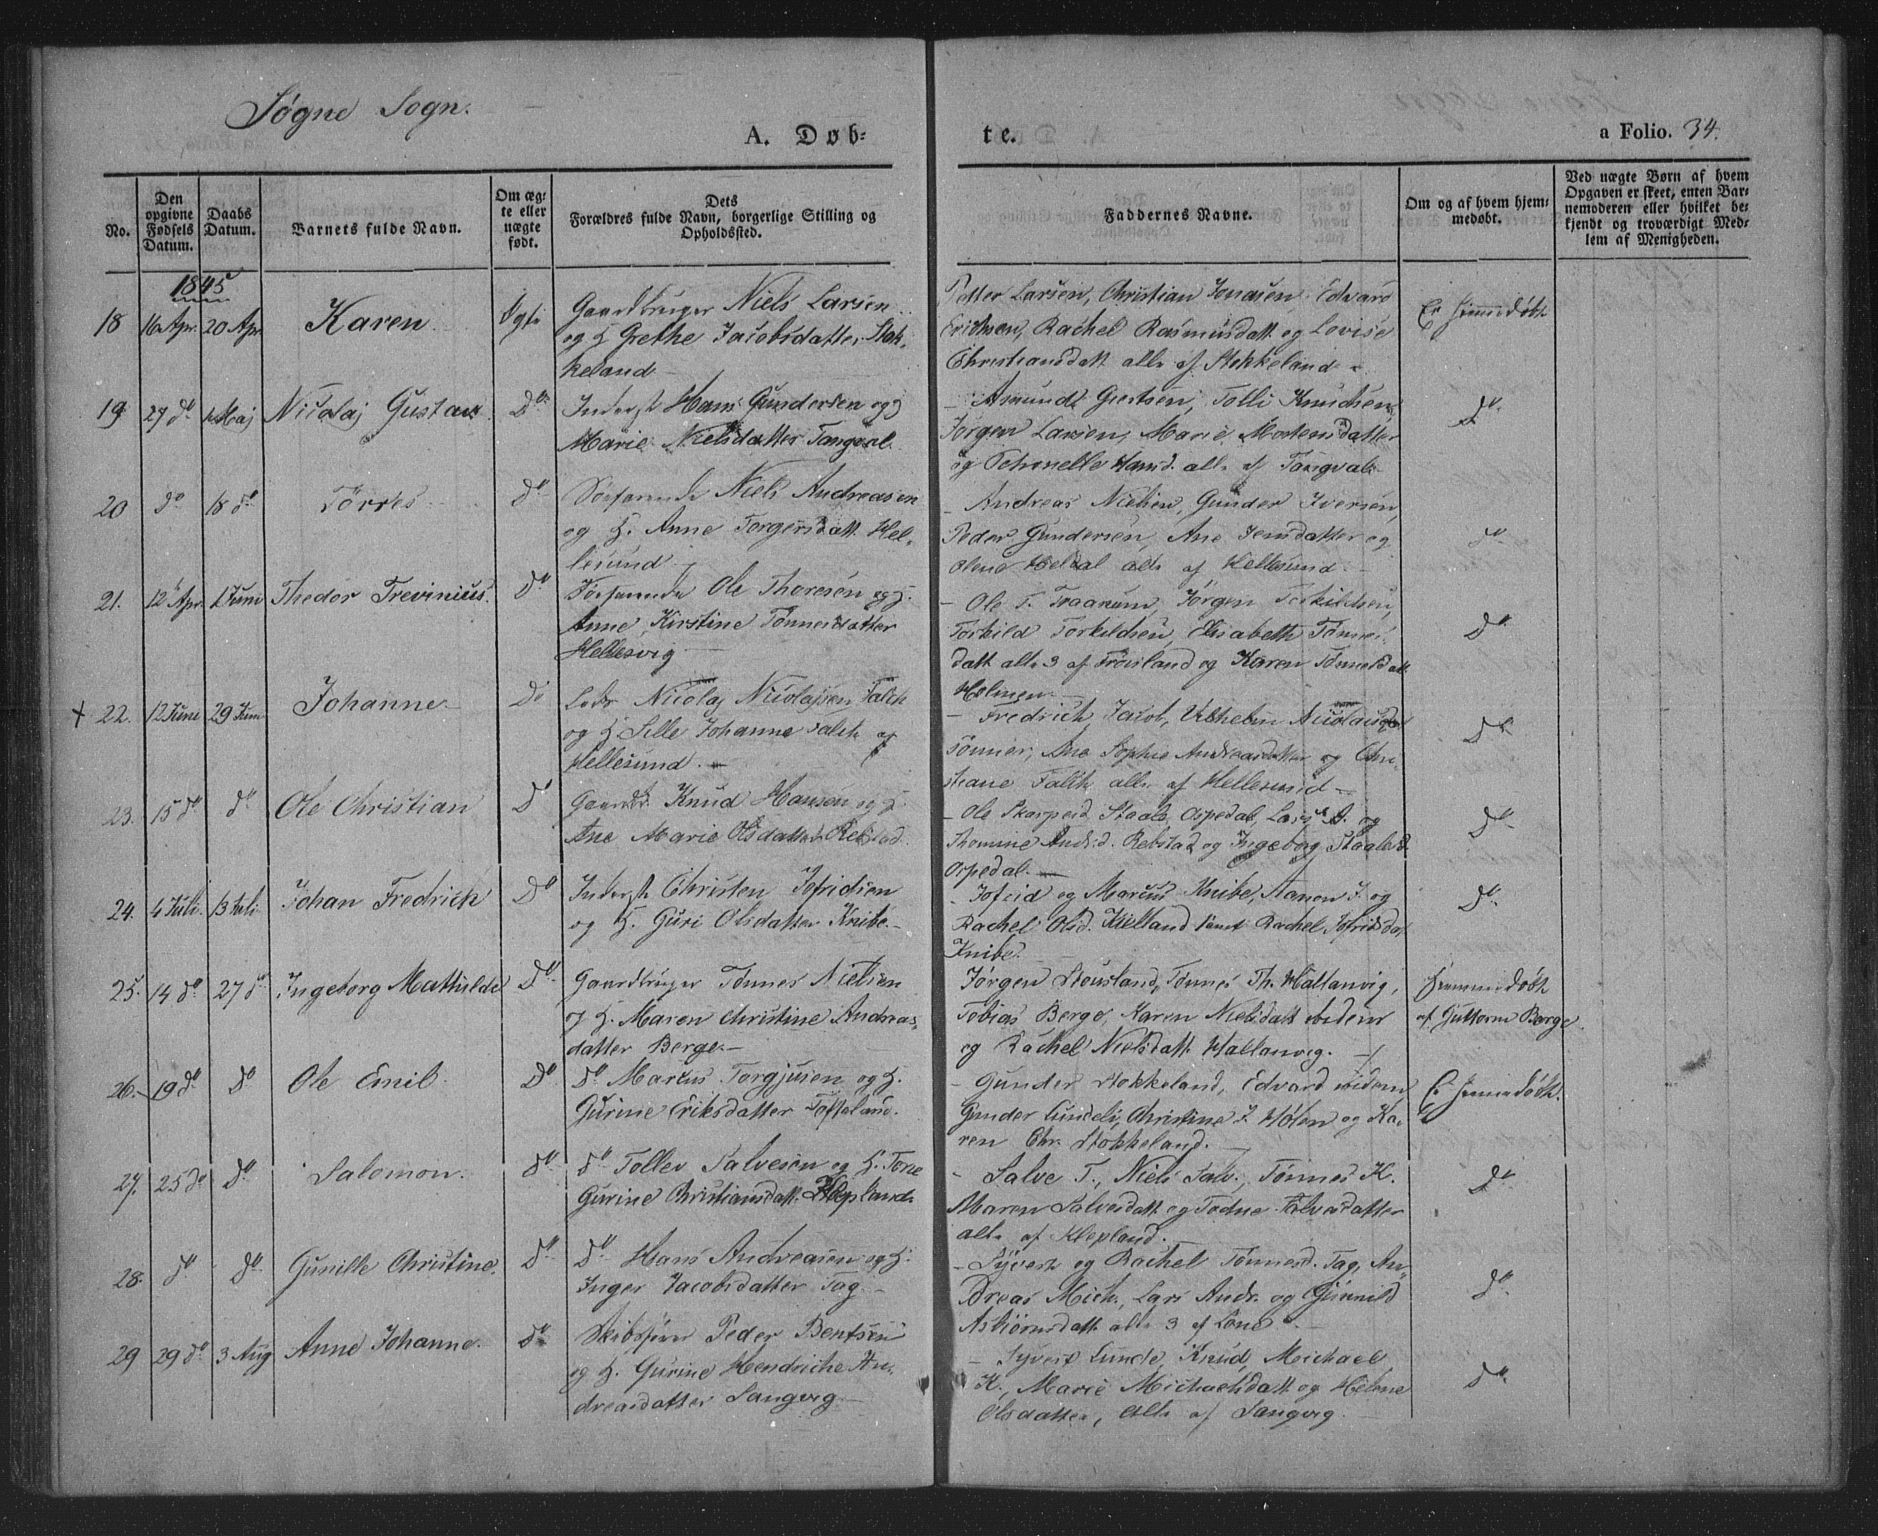 Søgne Sogn.
A. Døb-
te.
a Folio. 34.
No.
Den opgivne Fødsels Datum.
Daabs Datum.
Barnets fulde Navn.
Om æg-
te eller
uægte
født.
Dets
Forældres fulde Navn, borgerlige Stilling og
Opholdssted.
Faddernes Navne.
Om og af hvem hjem-
medøbt.
Ved uægte Børn af hvem
Opgaven er skeet, enten Bar-
nemoderen eller hvilket be-
kjendt og troværdigt Med-
lem af Menigheden.
1845
18 16 Apr. 20 Apr Karen Ægte Gaardbruger Niels Larsen
og H. Grethe Jacobsdatter Stok-
keland
Petter Larsen, Christian Jonasen, Edvard
Erichsen, Rachel Rasmusdatt og Lovise
Christiansdatt alle af Stokkeland
Ei hjemmedøbt
19 27 do. 1 Maj Nicolaj Gustav Do Inderst Hans Gundersen og H.
Marie Nielsdatter Tangval
Amund Giertsen, Tolli Knudsen
Jørgen Larsen, Marie Mortensdatter
og Petronelle Hansd. alle af Tangval
do
20 do 18 do Tørres do Søefarende Niels Andreasen
og H. Anne Torgersdatt. Hel-
lesund
Andreas Nielsen, Gunder Iversen,
Peder Gundersen, Ane Jensdatter og
Oline Heldal alle af Hellesund.
do
21. 12 Apr. 1 Juni Thedor Trevinius. do Søefarende Ole Thoresen og H.
Anne Kirstine Tønnesdatter
Hellesvig
Ole T. Traanum, Jørgen Torkildsen,
Torkild Torkildsen, Elisabeth Tønnes-
datt alle 3 af Trøisland og Karen Tønnesdatt
Holmen
do
+ 22. 12 Juni 29 Juni Johanne Do Lods Nicolaj Nicolajsen Falch
og H. Sille Johanne Falch af
Hellesund.
Fredrich, Jacob, Vilhelm Nicolaus
Tønnier, Ane Sophie Andreasdatter og Chri-
stiane Falch alle af Hellesund
do
23. 15 do do Ole Christian Do Gaardbr. Knud Hansen og H.
Ane Marie Olsdatter Rebstad.
Ole Skarpeid, Staale Ospedal, Lars A. og
Thomine Andsd. Rebstad og Ingeborg Staalesd.
Ospedal.
do
24. 4 Juli 13 Juli Johan Fredrich Do Inderst Christen Jofridsen
og H. Guri Olsdatter Knibe.
Jofrid og Marcus Knibe, Aanon J. og
Rachel Olsd. Kielland samt Rachel Jofridsdat
Knibe.
do
25. 14 do 27 do Ingeborg Mathilde do Gaardbruger Tønnes Nielsen
og H. Maren Christine Andreas-
datter Berge
Jørgen Stousland, Tønnes Th. Hallanvig,
Tobias Berge, Karen Nielsdatt ibidem
og Rachel Nielsdatt. Hallanvig.
Hjemmedøbt
af Guttorm Berge
26. 19 do do Ole Emil Do do Marcus Torgjusen og H.
Gurine Eriksdatter Tofteland.
Gunder Stokkeland, Edvard ibidem
Gunder Christine J. Hølen og Ka-
ren Chr. Stokkeland.
Ei hjemmedøbt.
27. 25 do do Salomon. do do Tollev Salvesen og H. Tone
Gurine Christiansdatt. Klepland
Salve T., Niels Salv., Tønnes K.
Maren Salvesdatt og Todne Salvesdatter
alle af Klepland.
do
28. do do Gunille Christine. do do Hans Andreasen og H.
Inger Jacobsdatter Tag.
Syvert og Rachel Tønnesd. Tag, An-
dreas Mich., Lars Andr. og Gunnild
Asbiørnsdatt alle 3 af Lone
do
29 29 do 3 Aug Anne Johanne. do Skibsfører Peder Bentsen
og H. Gurine Hendriche An-
dreasdatter Langvig
Syvert Lunde, Knud, Michael
K., Marie Michaelsdatt og Helene
Olsdatter, Alle af Langvig.
do